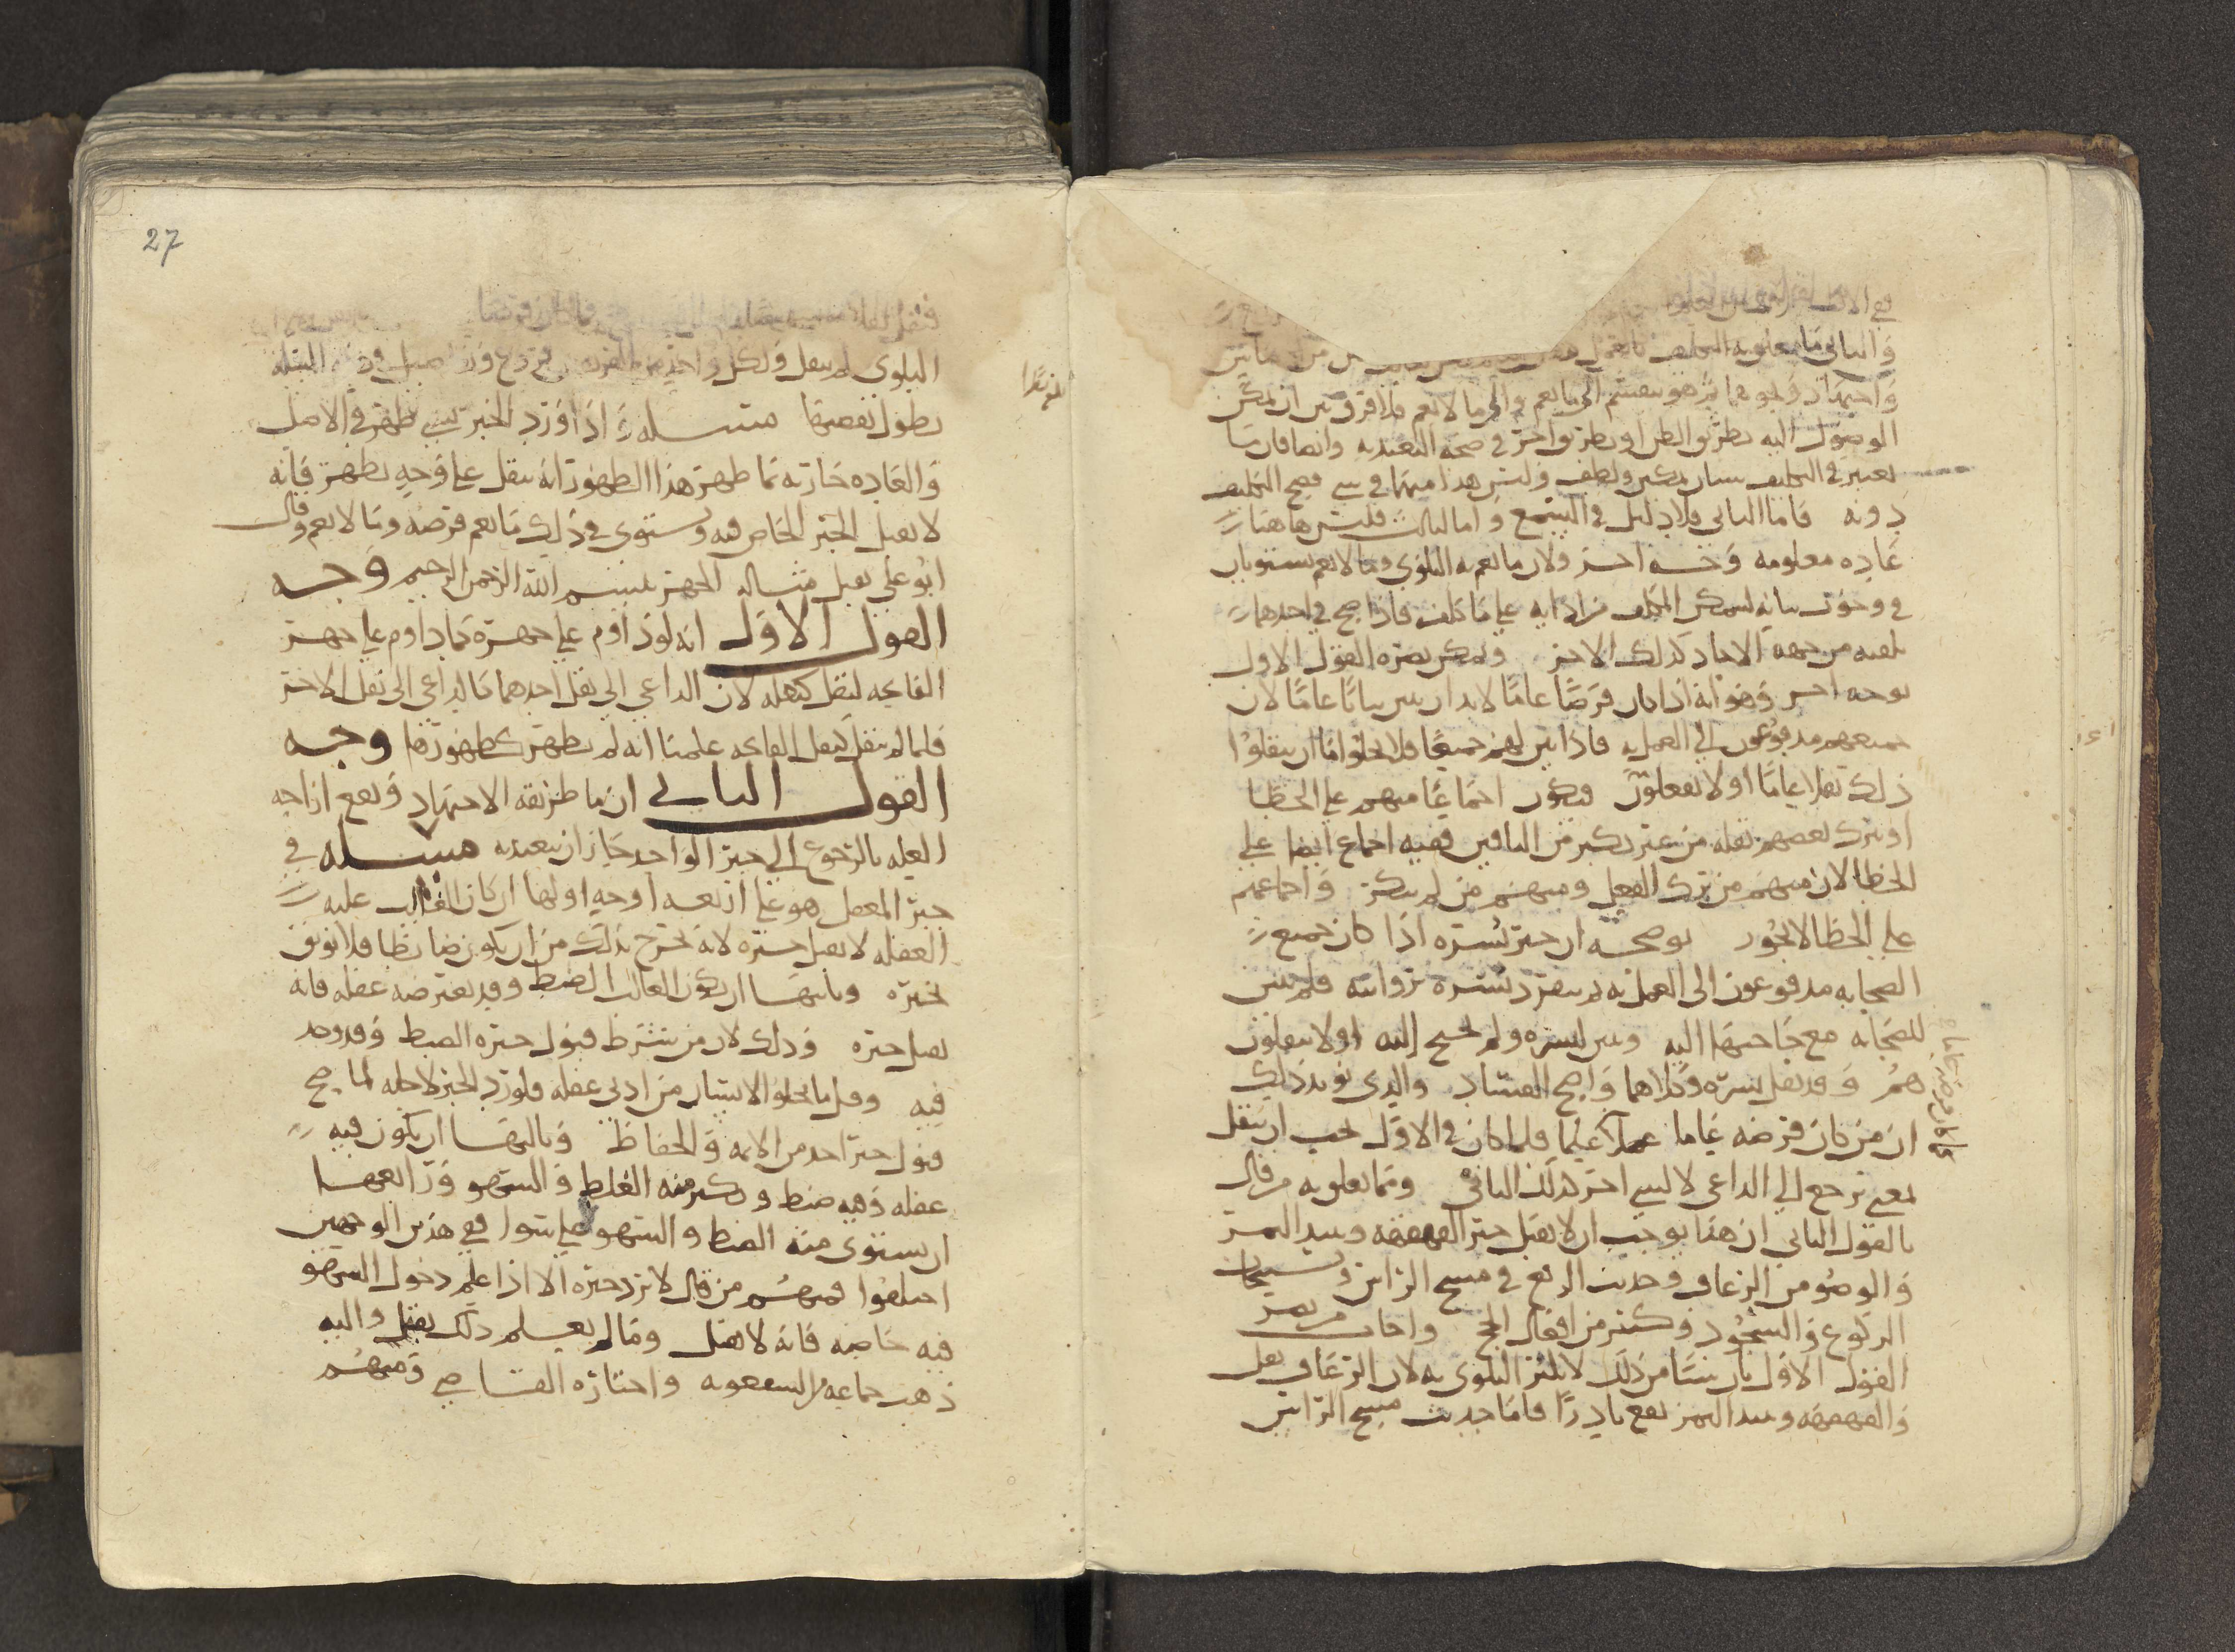 والثاني ما
واجتهاد ونحو هما ثم هو ينقسم الى ما يعم والى ما لا يعم فلا فرق بين ان يمكن
الوصول اليه بطريق الظن او بطريق اخر في صحة التعبد به وايضا فان ما
يعتبر في التكليف بيان تمكين ولطف وليس هذا منهما في شي فصح التكليف
دونه فاما الثاني فلا دليل في السمع واما الثالث فليس هاهنا
عادة معلومة وجه اخر ولان ما تعم به البلوى وما لا تعم يستويان
في وجوب بيانه ليتمكن المكلف من ادايه على ما كلف فاذا صح في احدهما
تلقيه من جهة الاحاد كذلك الاخر ويمكن نصرة القول الاول
بوجه اخر وهو انه اذا كان فرضا عاما لا بد ان يبين بيانا عاما لان
جميعهم مدفوعون الى العمل به فاذا بين لهم جميعا فلا يخلوا اما ان ينقلوا
ذلك نقلا عاما او لا يفعلون فيكون اجماعا منهم على الخطا
او يترك بعضهم نقله من غير نكير من الباقين ففيه اجماع ايضا على
الخطا لان منهم من ترك الفعل ومنهم من لم ينكر واجماعهم
على الخطا لا يجوز يوضحه ان خبر بسرة اذا كان جميع
الصحابة مدفوعون الى العمل به لم ينفرد بسرة بروايته فلم يبين
للصحابة مع حاجتها اليه وبين لبسره ولم تحتج اليه او لا ينقلون
هم وقد نقل بسرة وكلاهما واضح الفساد والذي يؤيد ذلك
ان من كان فرضه عاما عملا علما فلما كان في الاول يجب ان ينقل
لمعنى يرجع الى الداعي لا لشي اخر كذلك الثاني ومما يعلو به من قال
بالقول الثاني ان هذا يوجب ان لا يقبل خبر القهقهة ونبيذ التمر
والوضو من الرعاف وحديث الربع في مسح الراس وتسبيحات
الركوع والسجود وكثير من افعال الحج واجاب من نصر
القول الاول بان شيا من ذلك لا تكثر البلوى به لان الرعاف يقل
والقهقهة ونبيذ التمر يقع نادرا فاما حديث مسح الراس
27
البلوى لم ينقل ولكل واحد من
يطول تقصيها مسئلة اذا ورد الخبر بشي ظهر في الاصل
والعادة جارية بما ظهر هذا الظهور انه ينقل على وجه يظهر فانه
لا يقبل الخبر الخاص فيه ويستوى في ذلك ما يعم فرضه وما لا يعم وقال
ابو علي يقبل مثاله الجهر ببسم الله الرحمن الرحيم وجه
القول الاول انه لو داوم على جهره كما داوم على جهر
الفاتحة لنقل كنقله لان الداعي الى نقل احدهما كالداعي الى نقل الاخر
فلما لم ينقل كنقل الفاتحة علمنا انه لم يظهر كظهورها وجه
القول الثاني ان ما طريقه الاجتهاد ويقع ازاحة
العلة بالرجوع الى خبر الواحد جاز ان يتعبد به مسئلة في
خبر المغفل هو على اربعة اوجه اولها ان كان الغالب عليه
الغفلة لا يقبل خبره لانه يخرج بذلك من ان يكون ضابطا فلا يوثق
بخبره وثانيها ان يكون الغالب الضبط وقد يعترضه غفلة فانه
يقبل خبره وذلك لان من شرط قبول خبره الضبط وقد وجد
فيه وقل ما يخلو الانسان من ادنى غفلة فلو رد الخبر لاجله لما صح
قبول خبر احد من الايمة والحفاظ وثالثها ان يكون فيه
غفلة وفيه ضبط ويكثر منه الغلط والسهو ورابعها
ان يستوى منه الضبط والسهو على سوا ففي هذين الوجهين
اختلفوا فمنهم من قال لا يرد خبره الا اذا علم دخول السهو
فيه خاصة فانه لا يقبل وما لم يعلم ذلك يقبل واليه
ذهب جماعة من الشفعوية واختاره القاضي ومنهم